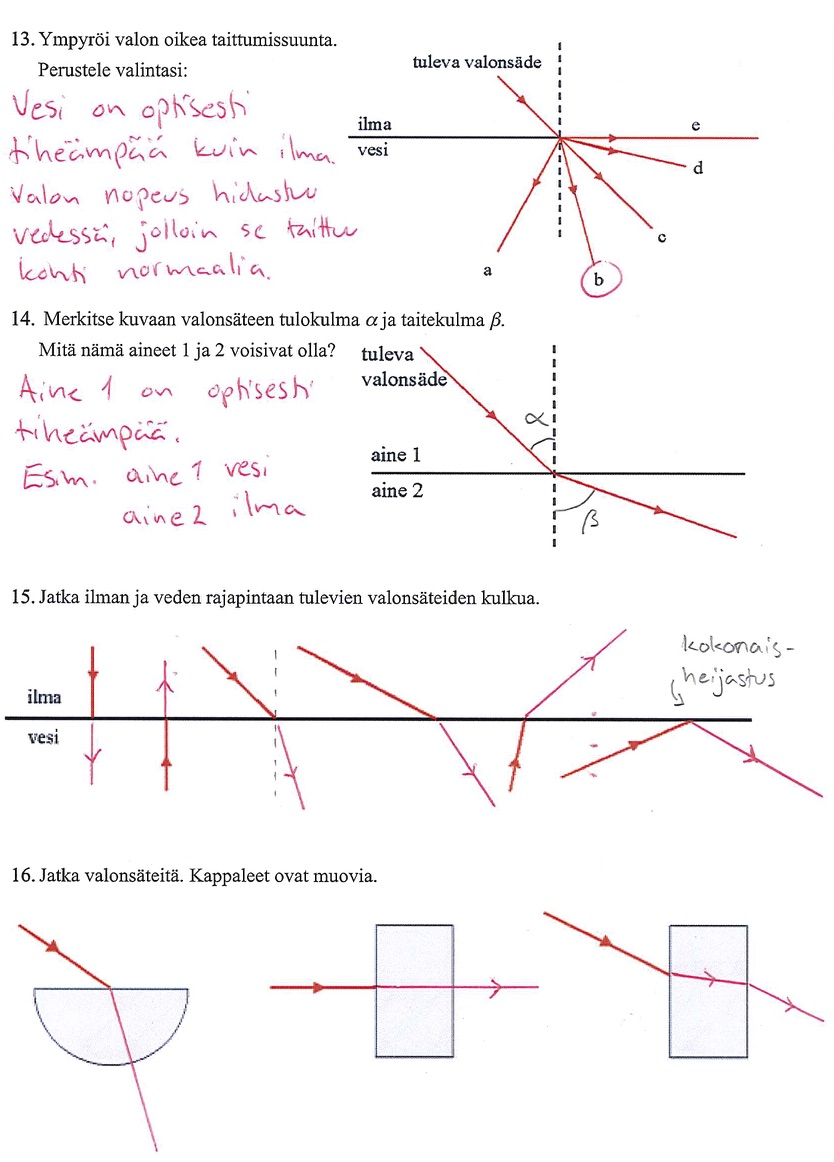 13. Ympyröi valon oikea taittumissuunta.
Perustele valintasi:
Vesi on optisesti
tiheämpää kuin ilma.
Valon nopeus hidastuu
vedessä, jolloin se taittuu
kohti normaalia.
tuleva valonsäde
ilma
vesi
e
d
c
b
a
14. Merkitse kuvaan valonsäteen tulokulma α ja taitekulma β.
Mitä nämä aineet 1 ja 2 voisivat olla?
Aine 1 on optisesti
tiheämpää.
Esim. aine 1 vesi
aine 2 ilma
tuleva
valonsäde
α
aine 1
aine 2
β
15. Jatka ilman ja veden rajapintaan tulevien valonsäteiden kulkua.
kokonais-
heijastus
ilma
vesi
16. Jatka valonsäteitä. Kappaleet ovat muovia.